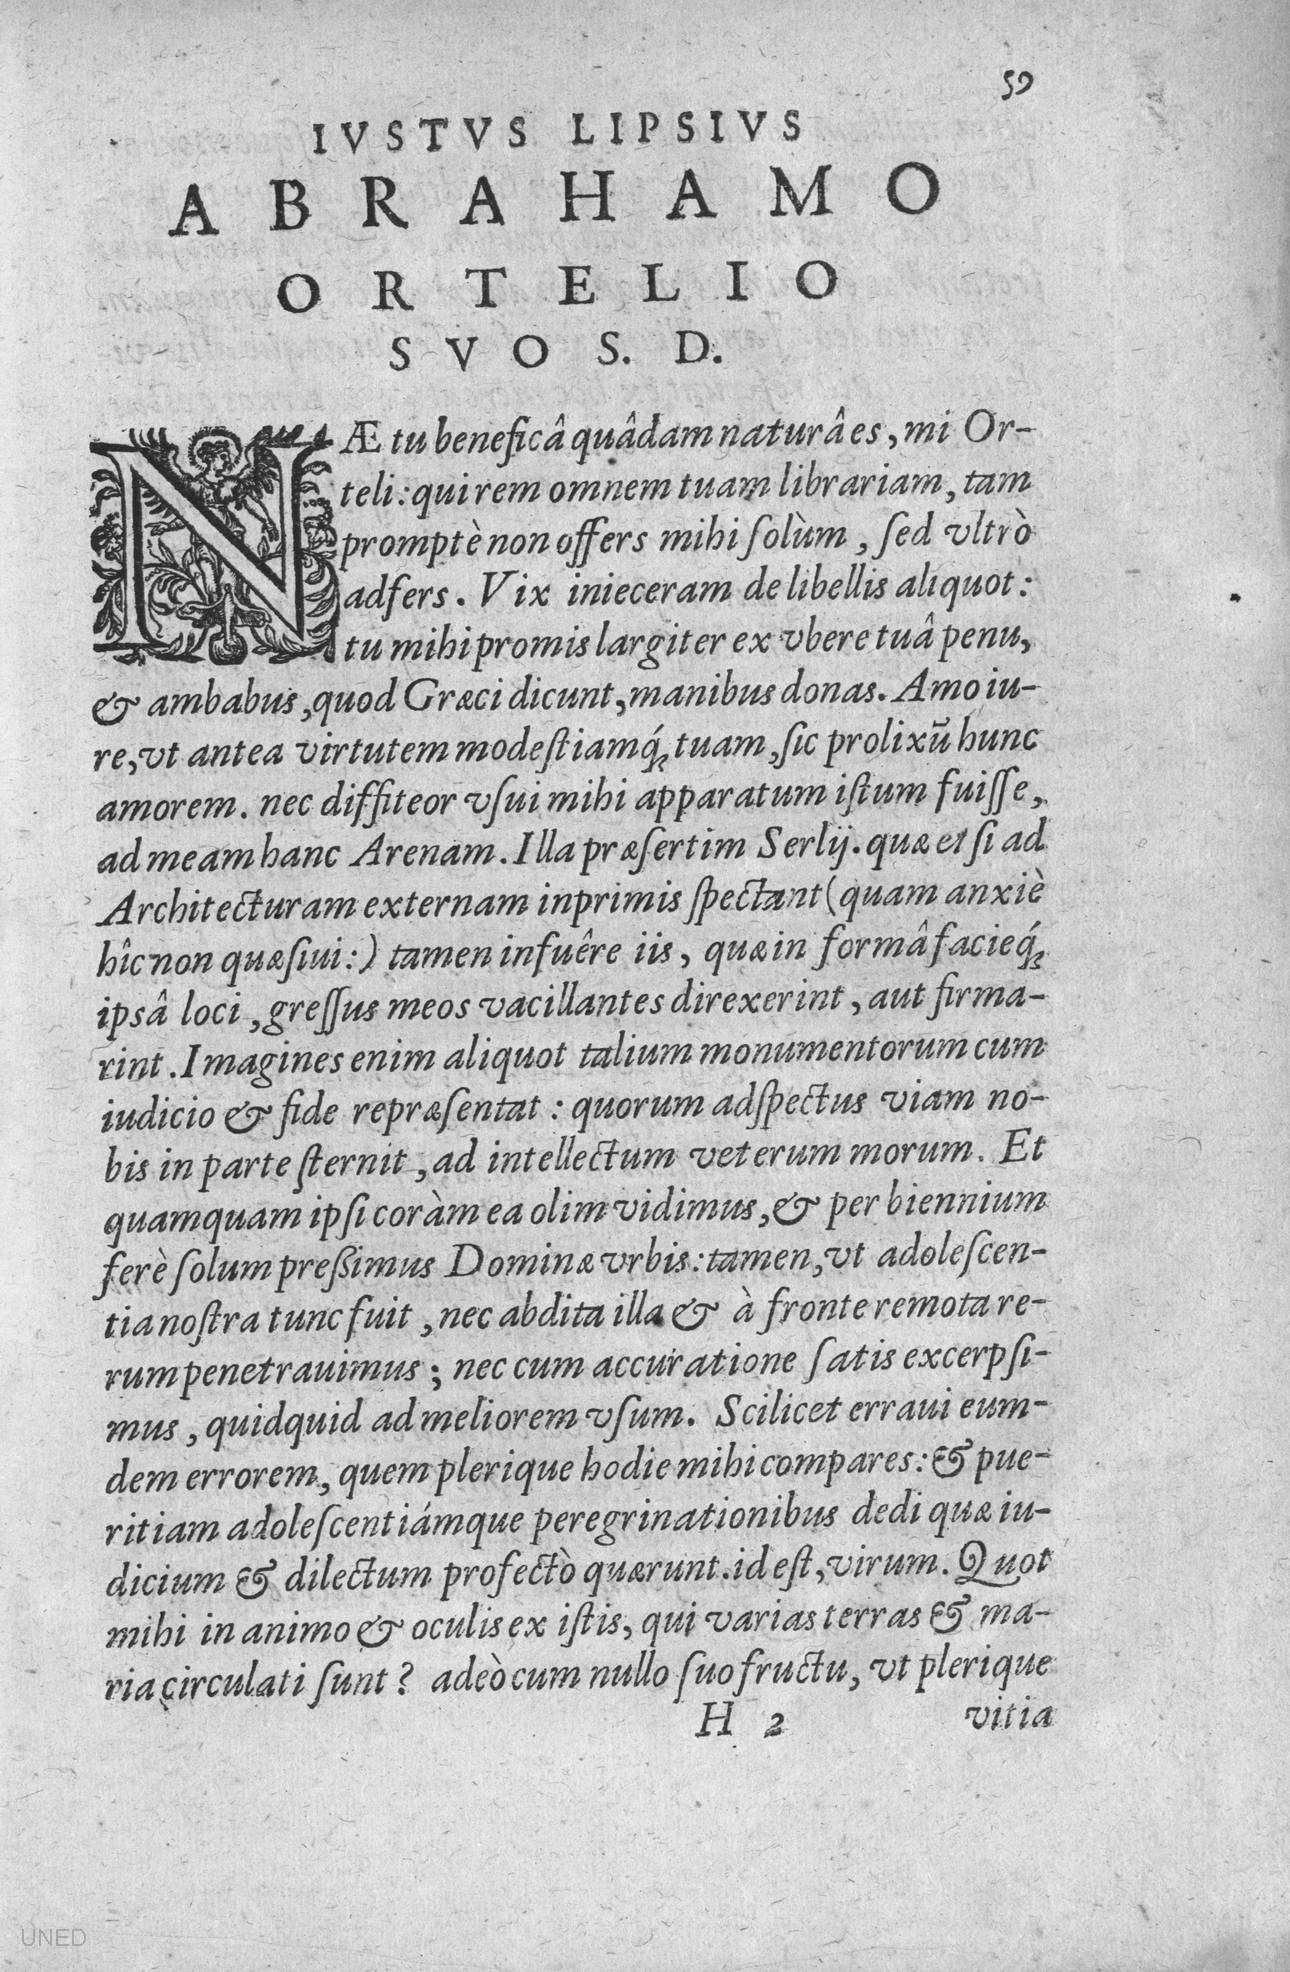 59
IVSTVS LIPSIVS
ABRAHAMO
ORTELIO
SVO S. D.
NÆ tu beneficâ quâdam naturâ es, mi Or-
teli: qui rem omnem tuam librariam, tam
promptè non offers mihi ſolùm, ſed vltrò
adfers. Vix inieceram de libellis aliquot:
tu mihi promis largiter ex vbere tuâ penu,
& ambabus, quod Græci dicunt, manibus donas. Amo iu-
re, vt antea virtutem modeſtiamq́; tuam, ſic prolixū hunc
amorem. nec diffiteor vſui mihi apparatum iſtum fuiſſe,
ad meam hanc Arenam. Illa præſertim Serlij. quæ etſi ad
Architecturam externam inprimis ſpectant (quam anxiè
hîc non quæſiui:) tamen infuêre iis, quæ in formâ facieq́;
ipsâ loci, greſſus meos vacillantes direxerint, aut firma-
rint. Imagines enim aliquot talium monumentorum cum
iudicio & fide repræſentat: quorum adſpectus viam no-
bis in parte ſternit, ad intellectum veterum morum. Et
quamquam ipſi coràm ea olim vidimus, & per biennium
ferè ſolum preßimus Dominæ vrbis: tamen, vt adoleſcen-
tia noſtra tunc fuit, nec abdita illa & à fronte remota re-
rum penetrauimus; nec cum accuratione ſatis excerpſi-
mus, quidquid ad meliorem vſum. Scilicet erraui eum-
dem errorem, quem plerique hodie mihi compares: & pue-
ritiam adoleſcentiámque peregrinationibus dedi quæ iu-
dicium & dilectum profectò quærunt. id eſt, virum. Quot
mihi in animo & oculis ex iſtis, qui varias terras & ma-
ria circulati ſunt? adeò cum nullo ſuo fructu, vt plerique
H 2 vitia
UNED